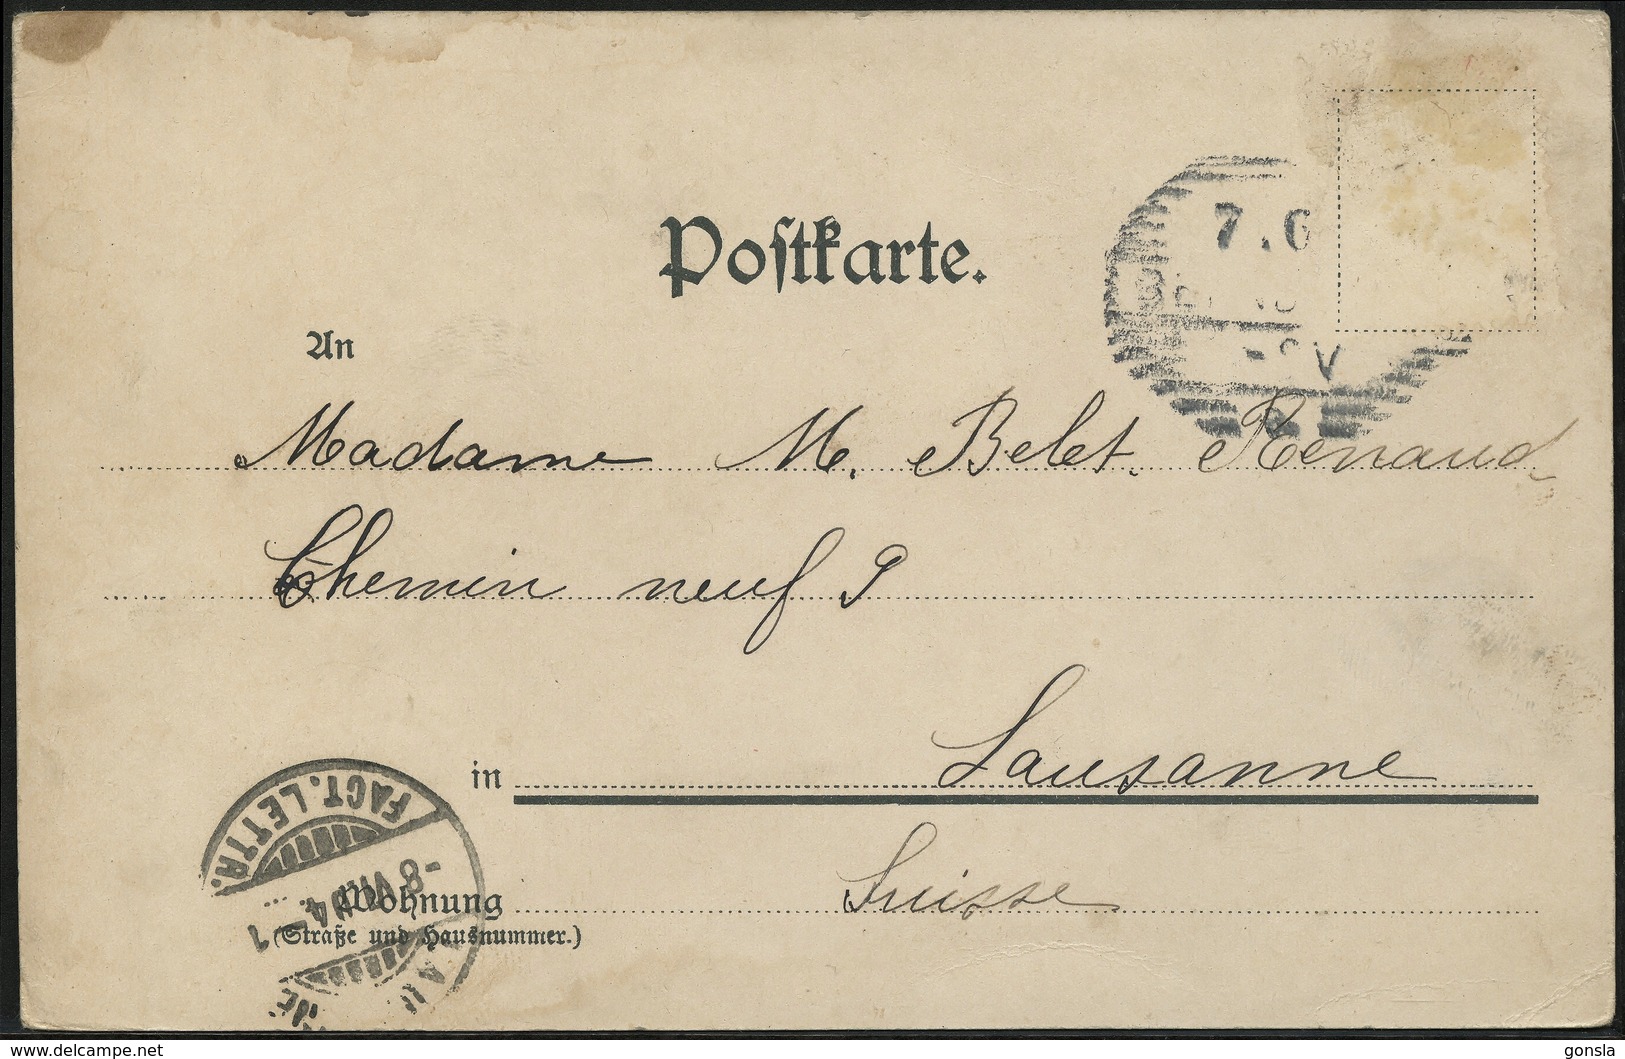 Postkarte.
7.6
An
Madame M. Belet. Renaud
Chemin neuf 9
in Lausanne
Suisse
Wohnung
(Straße und Hausnummer.)
FACT. LETTR.
-8 VI 04 - 1
delcampe.net
gonsla